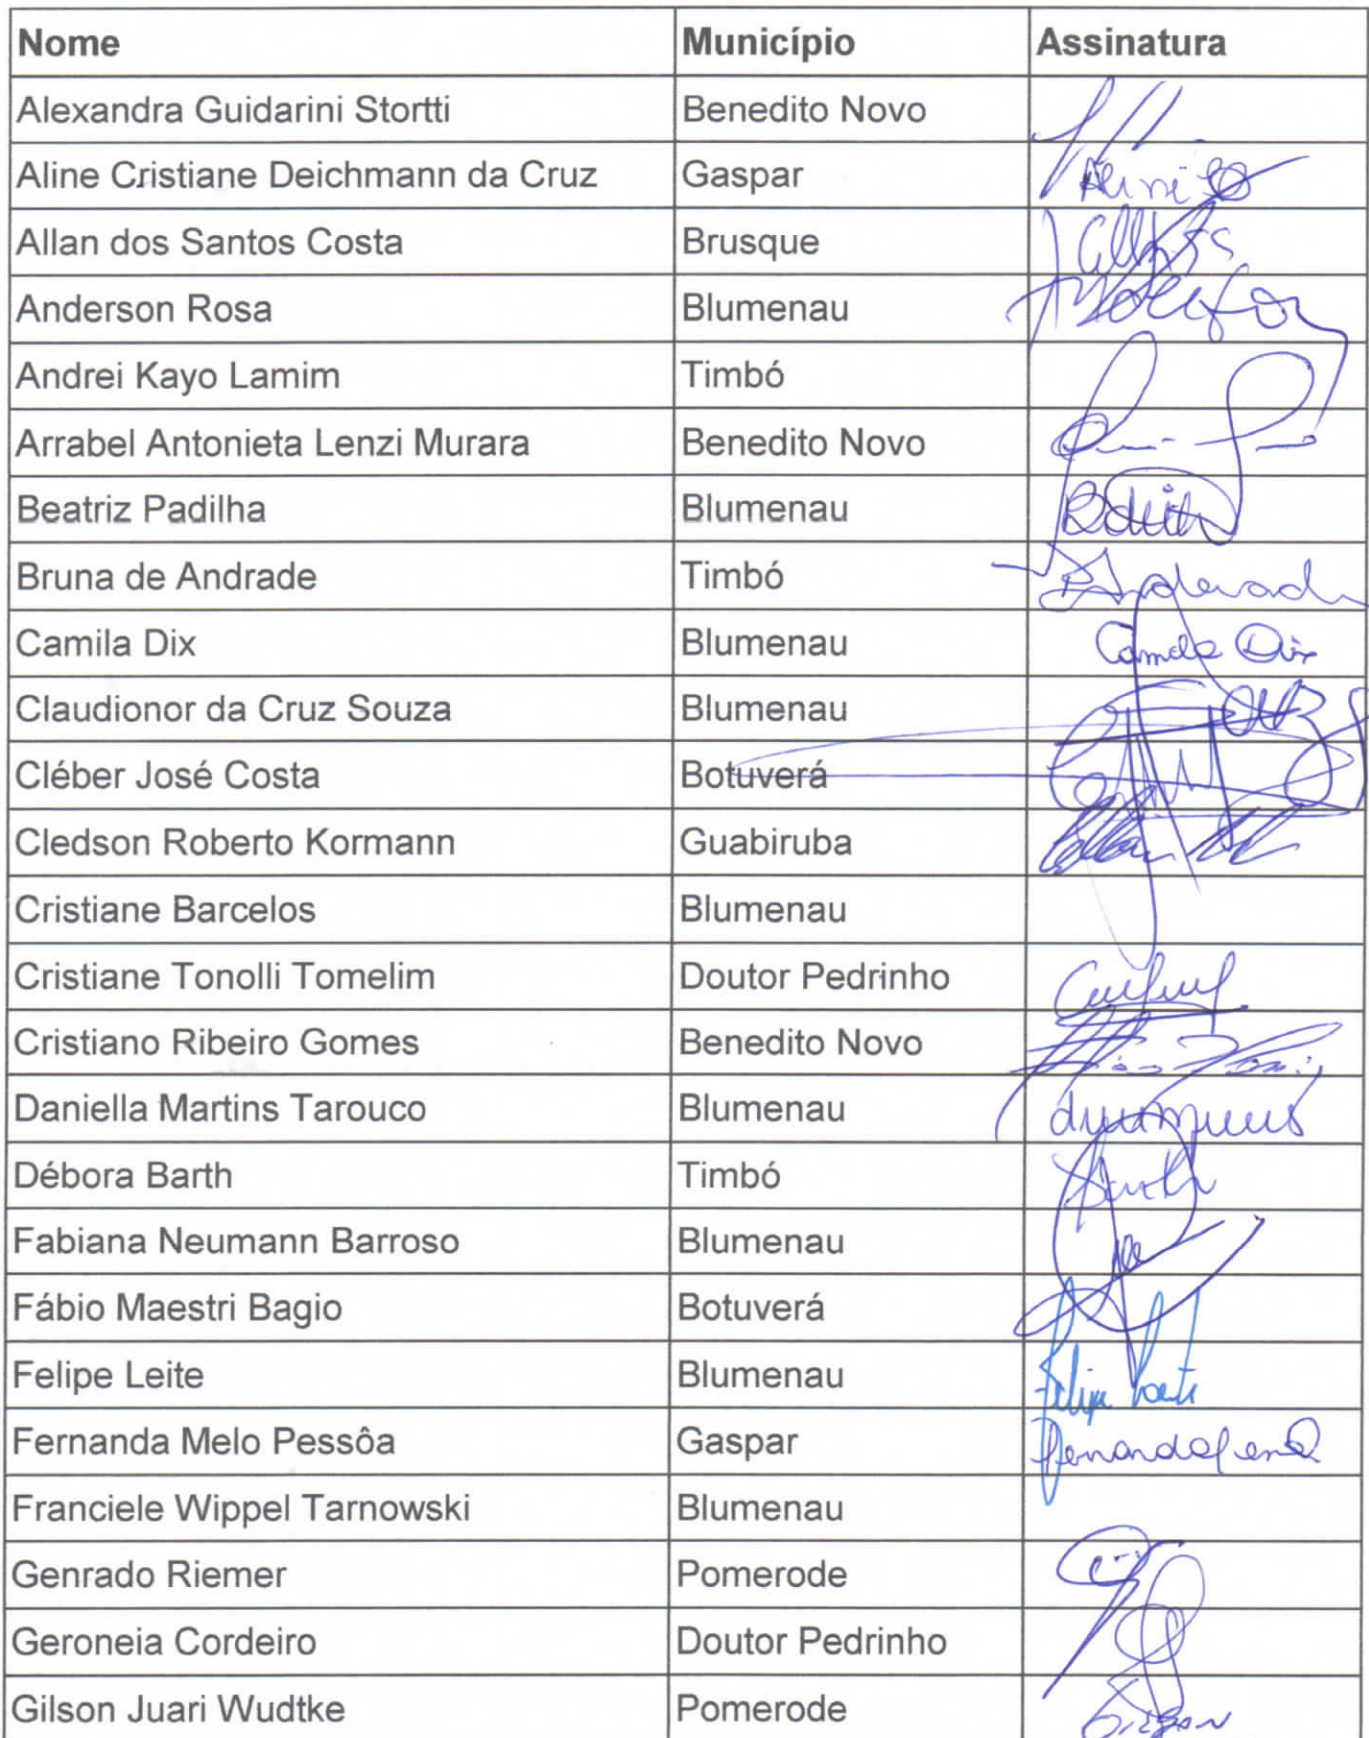 Nome Município Assinatura
Alexandra Guidarini Stortti Benedito Novo
Aline Cristiane Deichmann da Cruz Gaspar
Allan dos Santos Costa Brusque
Anderson Rosa Blumenau
Andrei Kayo Lamim Timbó
Arrabel Antonieta Lenzi Murara Benedito Novo
Beatriz Padilha Blumenau
Bruna de Andrade Timbó
Camila Dix Blumenau Camila Dix
Claudionor da Cruz Souza Blumenau
Cléber José Costa Botuverá
Cledson Roberto Kormann Guabiruba
Cristiane Barcelos Blumenau
Cristiane Tonolli Tomelim Doutor Pedrinho
Cristiano Ribeiro Gomes Benedito Novo
Daniella Martins Tarouco Blumenau
Débora Barth Timbó
Fabiana Neumann Barroso Blumenau
Fábio Maestri Bagio Botuverá
Felipe Leite Blumenau Felipe Leite
Fernanda Melo Pessôa Gaspar
Franciele Wippel Tarnowski Blumenau
Genrado Riemer Pomerode
Geroneia Cordeiro Doutor Pedrinho
Gilson Juari Wudtke Pomerode Gilson